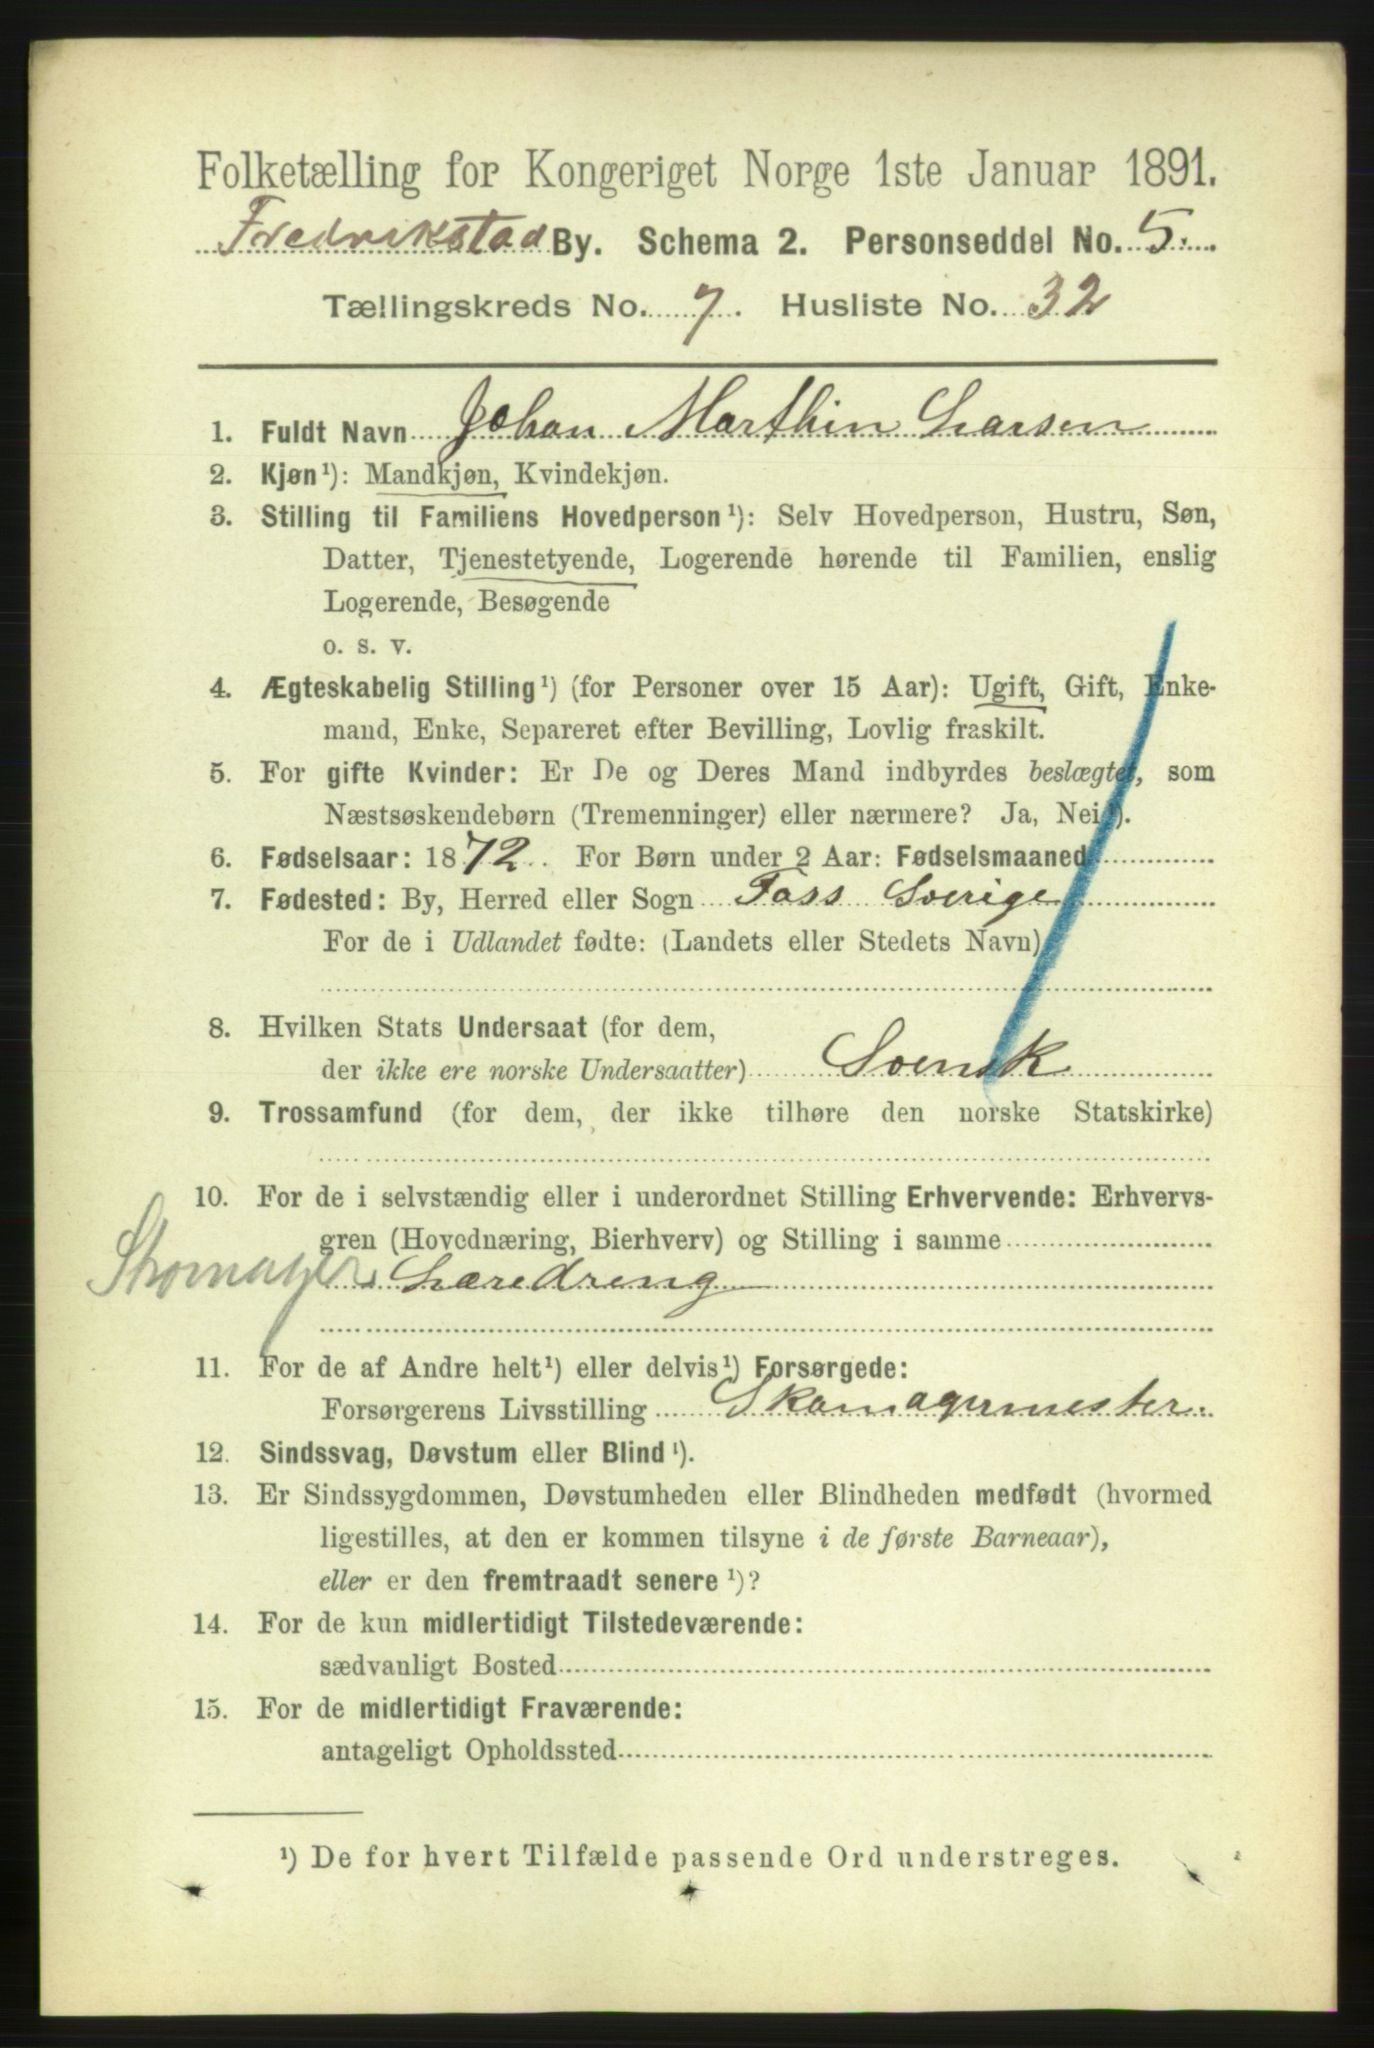 Folketælling for Kongeriget Norge 1ste Januar 1891.
Fredrikstad By. Schema 2. Personseddel No. 5.
Tællingskreds No. 7. Husliste No. 32
1. Fuldt Navn Johan Marthin Larsen
2. Kjøn¹): Mandkjøn, Kvindekjøn.
3. Stilling til Familiens Hovedperson¹): Selv Hovedperson, Hustru, Søn,
Datter, Tjenestetyende, Logerende hørende til Familien, enslig
Logerende, Besøgende
o. s. v.
4. Ægteskabelig Stilling¹) (for Personer over 15 Aar): Ugift, Gift, Enke-
mand, Enke, Separeret efter Bevilling, Lovlig fraskilt.
5. For gifte Kvinder: Er De og Deres Mand indbyrdes beslægtet, som
Næstsøskendebørn (Tremenninger) eller nærmere? Ja, Nei¹).
6. Fødselsaar: 1872. For Børn under 2 Aar: Fødselsmaaned
7. Fødested: By, Herred eller Sogn Foss Sverige
For de i Udlandet fødte: (Landets eller Stedets Navn)
8. Hvilken Stats Undersaat (for dem,
der ikke ere norske Undersaatter) Svensk
9. Trossamfund (for dem, der ikke tilhøre den norske Statskirke)
10. For de i selvstændig eller i underordnet Stilling Erhvervende: Erhvervs-
gren (Hovednæring, Bierhverv) og Stilling i samme
Skomager Læredreng
11. For de af Andre helt¹) eller delvis¹) Forsørgede:
Forsørgerens Livsstilling Skomagermester.
12. Sindssvag, Døvstum eller Blind¹).
13. Er Sindssygdommen, Døvstumheden eller Blindheden medfødt (hvormed
ligestilles, at den er kommen tilsyne i de første Barneaar),
eller er den fremtraadt senere¹)?
14. For de kun midlertidigt Tilstedeværende:
sædvanligt Bosted
15. For de midlertidigt Fraværende:
antageligt Opholdssted
¹) De for hvert Tilfælde passende Ord understreges.